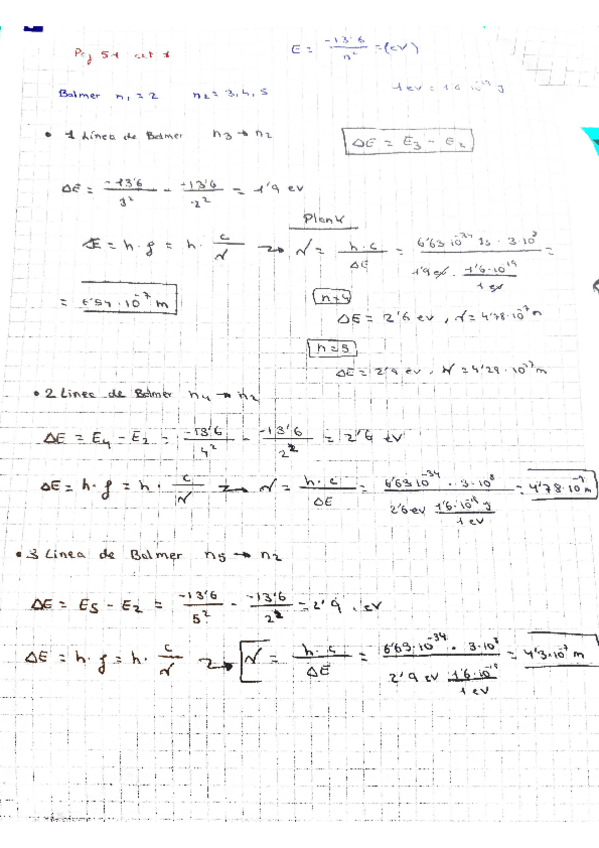 Pag 51 act 1
E = -13'6 / n² = (eV)
Balmer n₁ = 2 n₂ = 3, 4, 5
1 eV = 1'6·10⁻¹⁹ J
• 1 Linea de Balmer n₃ → n₂
ΔE = E₃ - E₂
ΔE = -13'6 / 3² - -13'6 / 2² = 1'9 eV
Plank
ΔE = h·f = h· c/λ → λ = h·c / ΔE = 6'63·10⁻³⁴ Js · 3·10⁸ / 1'9 eV · 1'6·10¹⁹ / 1 eV =
= 6'54·10⁻⁷ m
n=4
ΔE = 2'6 eV, λ = 4'78·10⁻⁷ m
n = 5
ΔE = 2'9 eV, λ = 4'29·10⁻⁷ m
• 2 Linea de Balmer n₄ → n₂
ΔE = E₄ - E₂ = -13'6 / 4² - -13'6 / 2² = 2'6 eV
ΔE = h·f = h· c/λ → λ = h·c / ΔE = 6'63·10⁻³⁴ · 3·10⁸ / 2'6 eV 1'6·10⁻¹⁹ J / 1 eV = 4'78·10⁻⁷ m
• 3 Linea de Balmer n₅ → n₂
ΔE = E₅ - E₂ = -13'6 / 5² - -13'6 / 2² = 2'9 · eV
ΔE = h·f = h· c/λ → λ = h·c / ΔE = 6'63·10⁻³⁴ · 3·10⁸ / 2'9 eV 1'6·10⁻¹⁹ / 1 eV = 4'3·10⁻⁷ m